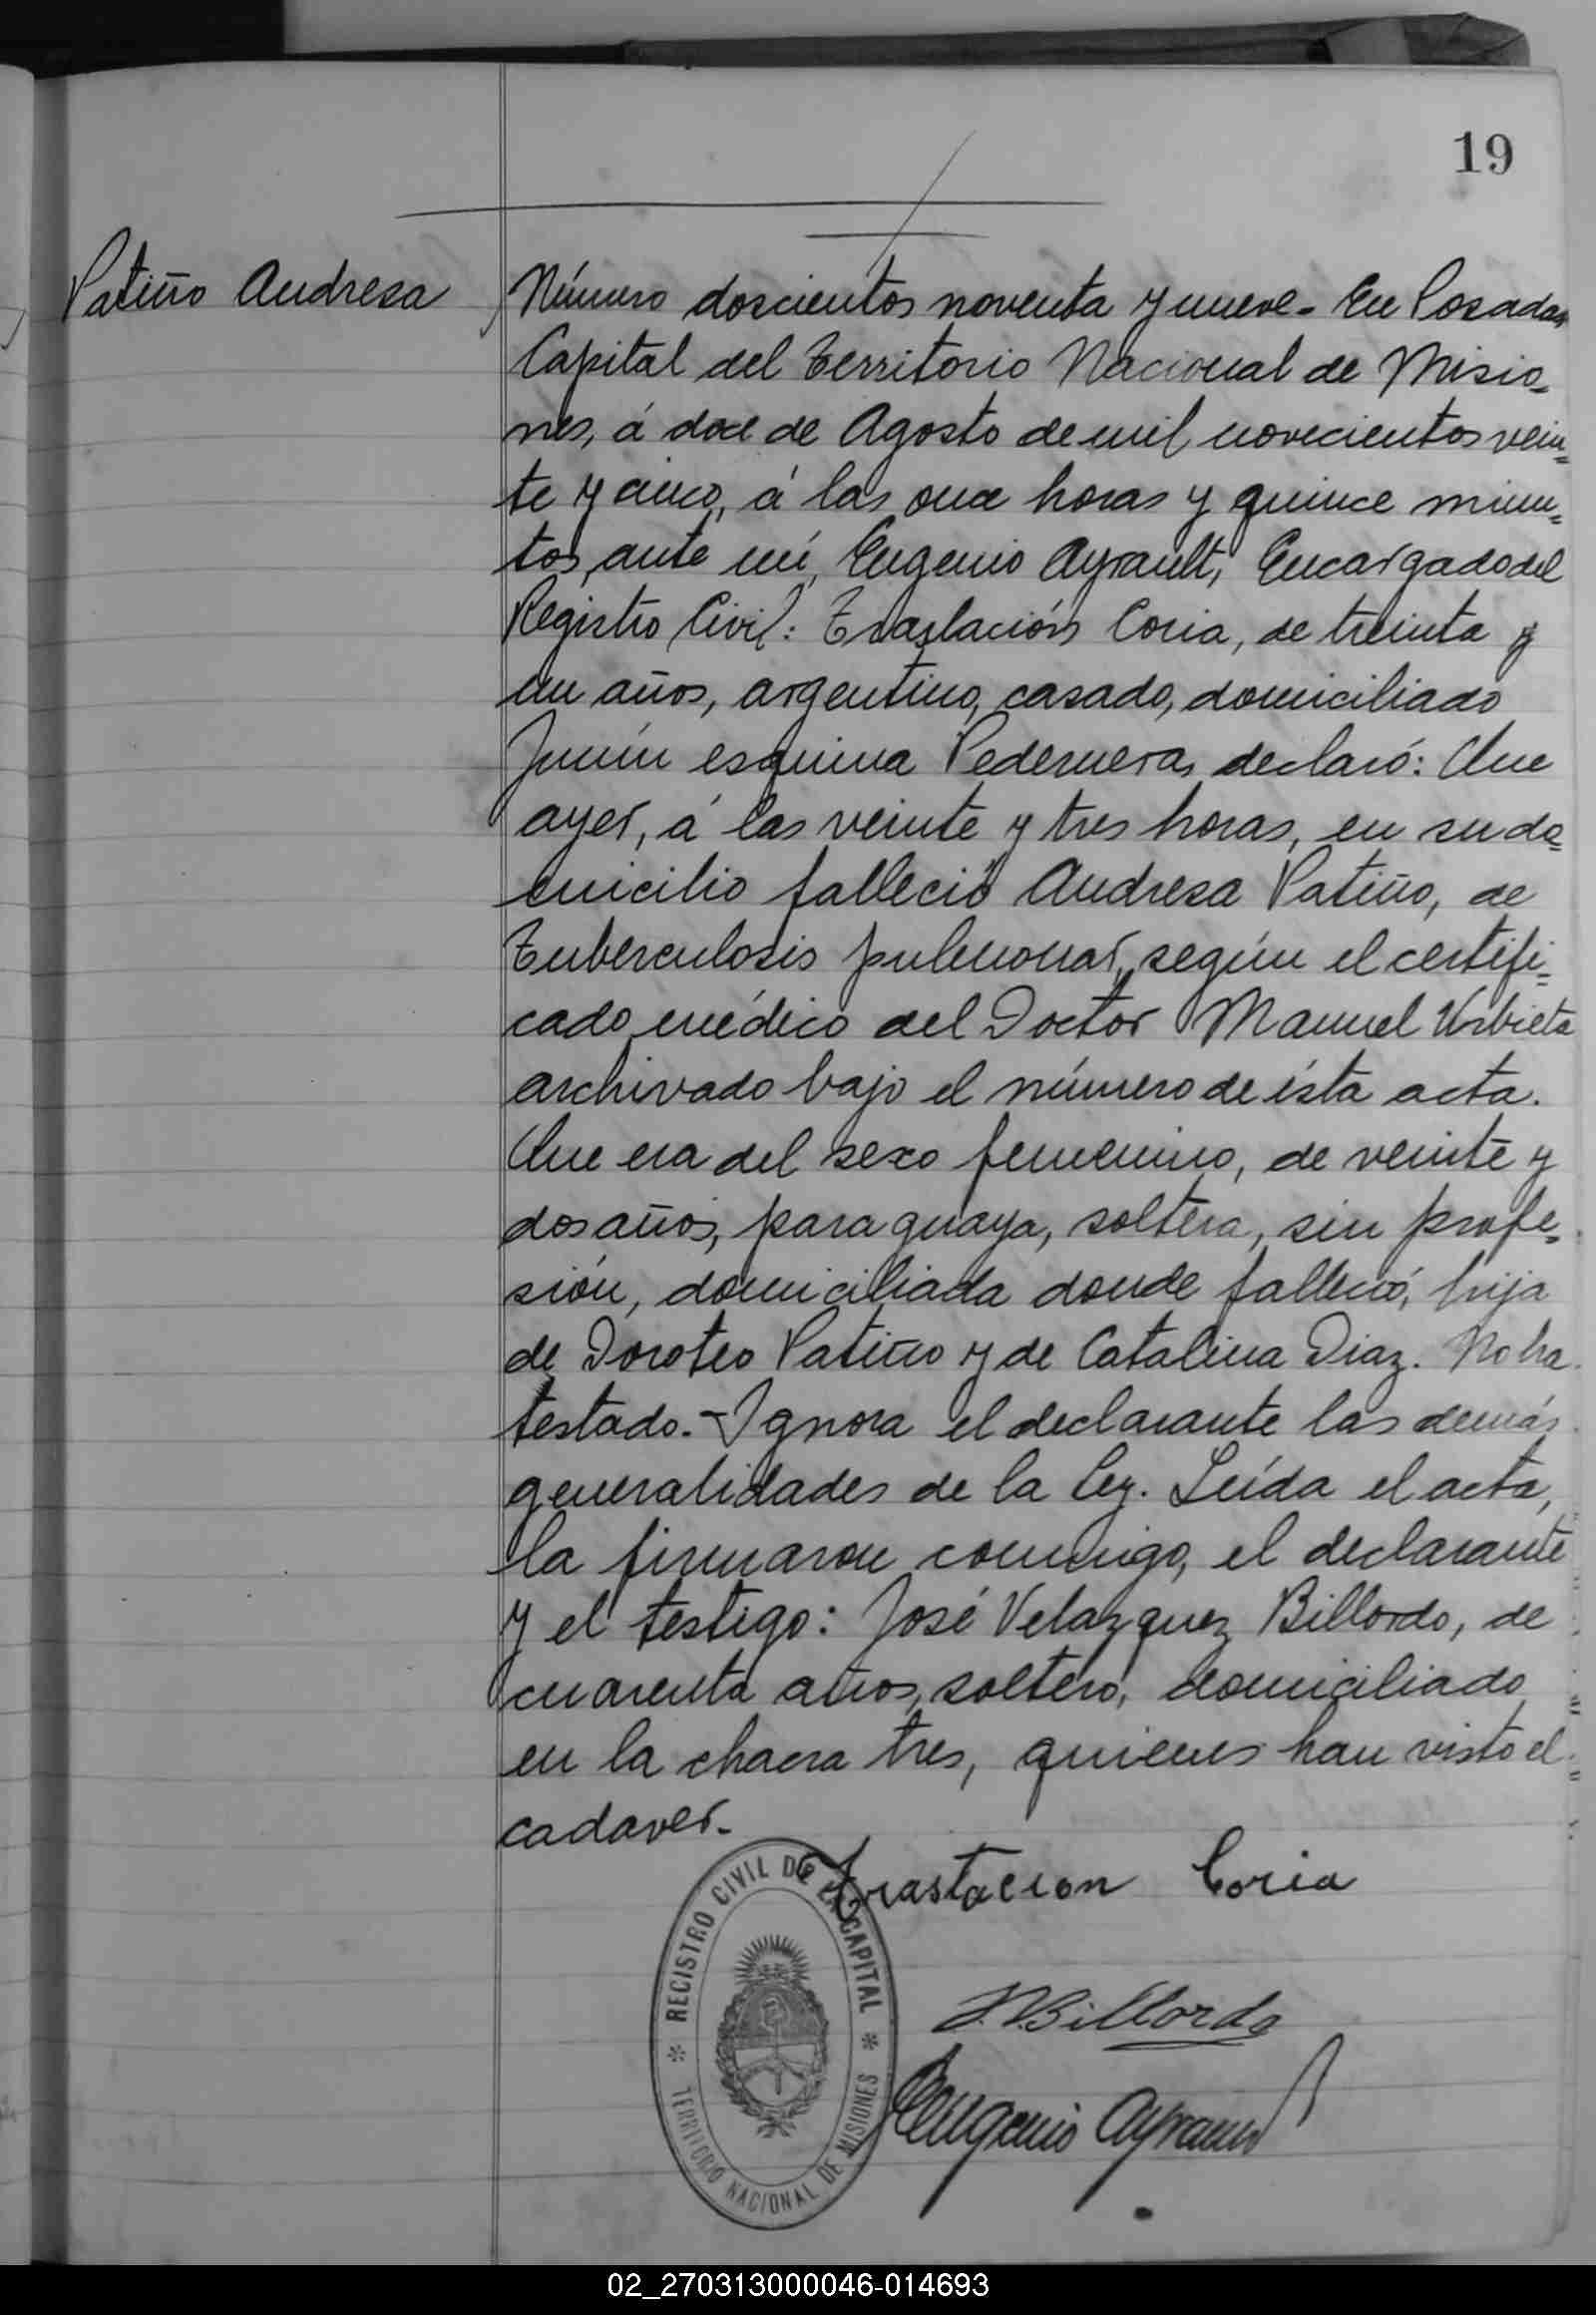 19
Patiño Andresa
Número doscientos noventa y nueve.- En Posadas
Capital del Territorio Nacional de Misio=
nes, á doce de Agosto de mil novecientos vein=
te y cinco, á las once horas y quince minu=
tos, ante mí, Eugenio Ayrault, Encargado del
Registro Civil: Traslación Coria, de treinta y
un años, argentino, casado, domiciliado
Junín esquina Pedernera, declaró: Que
ayer, á las veinte y tres horas, en su do=
micilio falleció Andresa Patiño, de
Tuberculosis pulmonar, según el certifi=
cado médico del Doctor Manuel Urbieta
archivado bajo el número de ésta acta.
Que era del sexo femenino, de veinte y
dos años, paraguaya, soltera, sin profe=
sión, domiciliada donde falleció, hija
de Doroteo Patiño y de Catalina Diaz. No ha
testado.- Ignora el declarante las demás
generalidades de la Ley. Leída el acta,
la firmaron conmigo, el declarante
y el testigo: José Velazquez Billordo, de
cuarenta años, soltero, domiciliado
en la chacra tres, quienes han visto el
cadaver.-
Trastacion Coria
J.V.Billordo
Eugenio Ayrault
REGISTRO CIVIL DE LA CAPITAL
* TERRITORIO NACIONAL DE MISIONES *
02_270313000046-014693